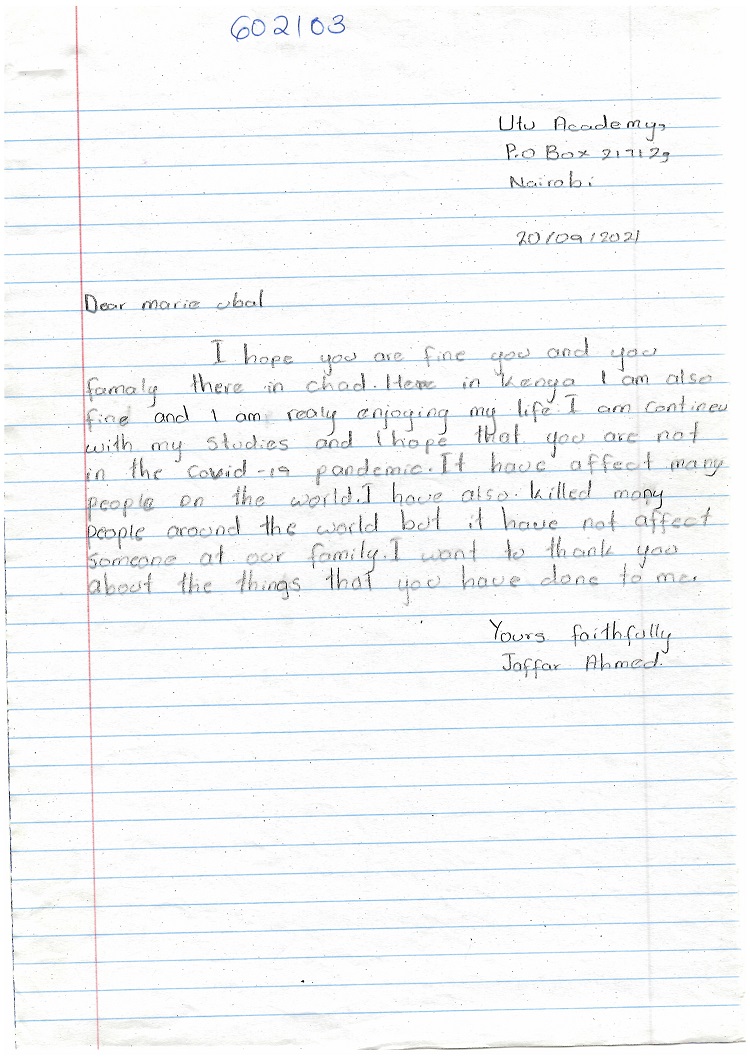 602103
Utu Academy,
P.O Box 21712,
Nairobi
20/09/2021
Dear marie ubal
I hope you are fine you and you
famaly there in chad. Here in Kenya I am also
fine and I am realy enjoying my life. I am contineu
with my studies and I hope that you are not
in the covid-19 pandemic. It have affect many
people on the world. I have also killed many
people around the world but it have not affect
someone at our family. I want to thank you
about the things that you have done to me.
Yours faithfully
Jaffar Ahmed.